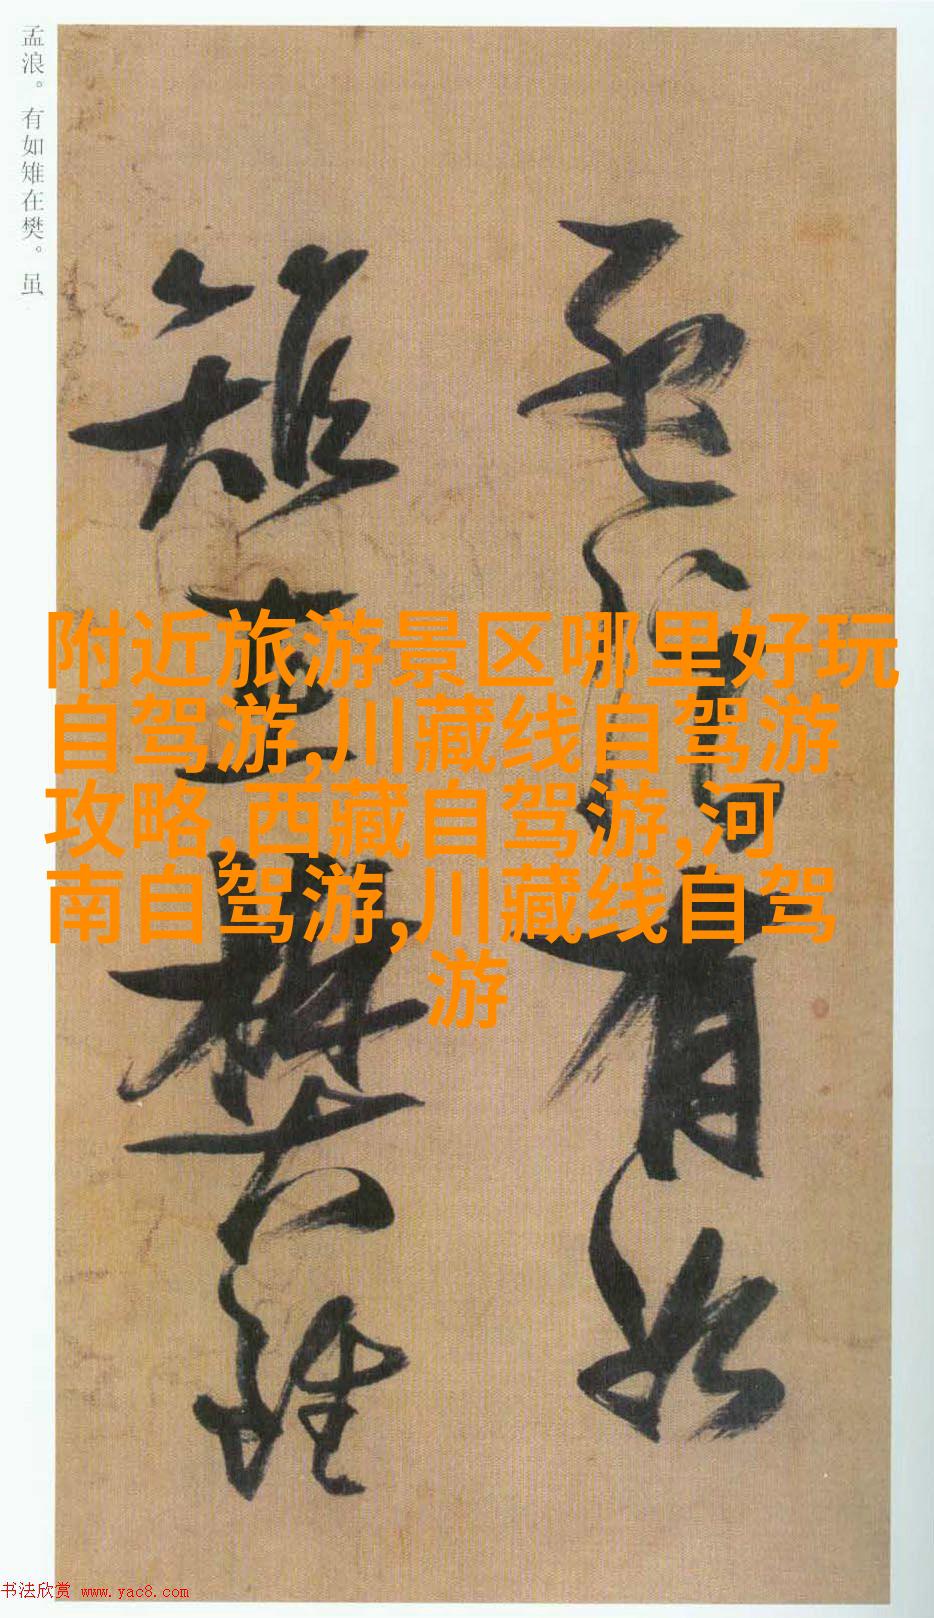 孟浪。有如雉在樊。虽
孟浪有如
雉在樊虽
附近旅游景区哪里好玩
自驾游,川藏线自驾游
攻略,西藏自驾游,河
南自驾游,川藏线自驾
游
书法欣赏 www.yac8.com